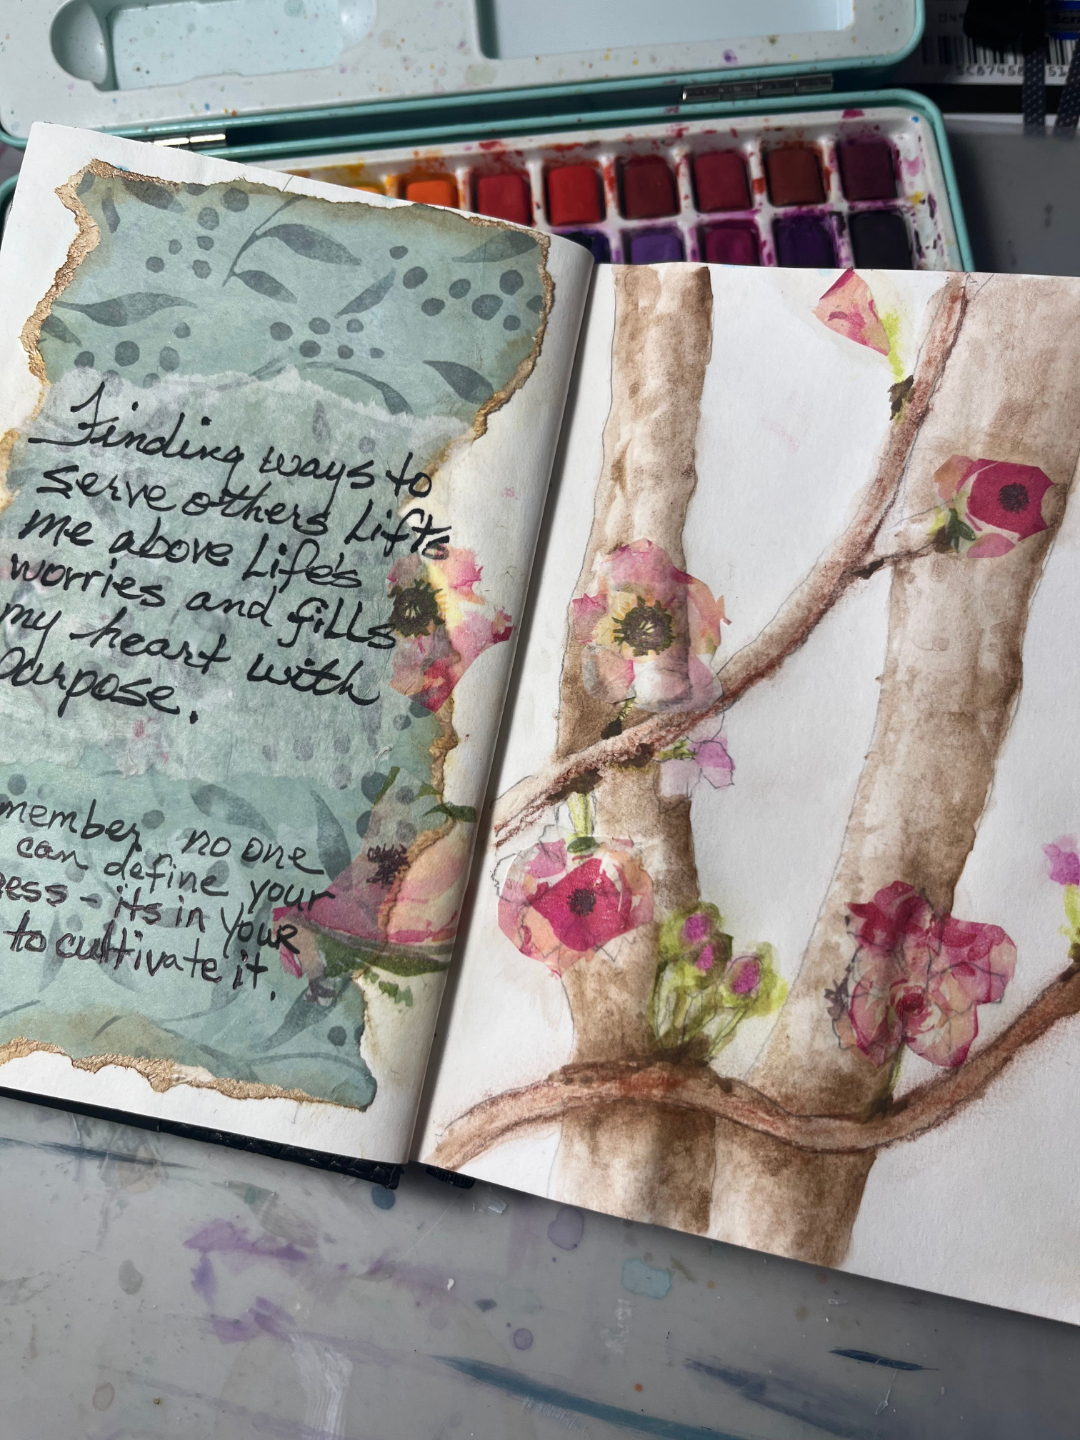 Finding ways to
serve others Lifts
me above Life's
worries and fills
my heart with
Purpose.
member no one
can define your
ess - its in your
to cultivate it.